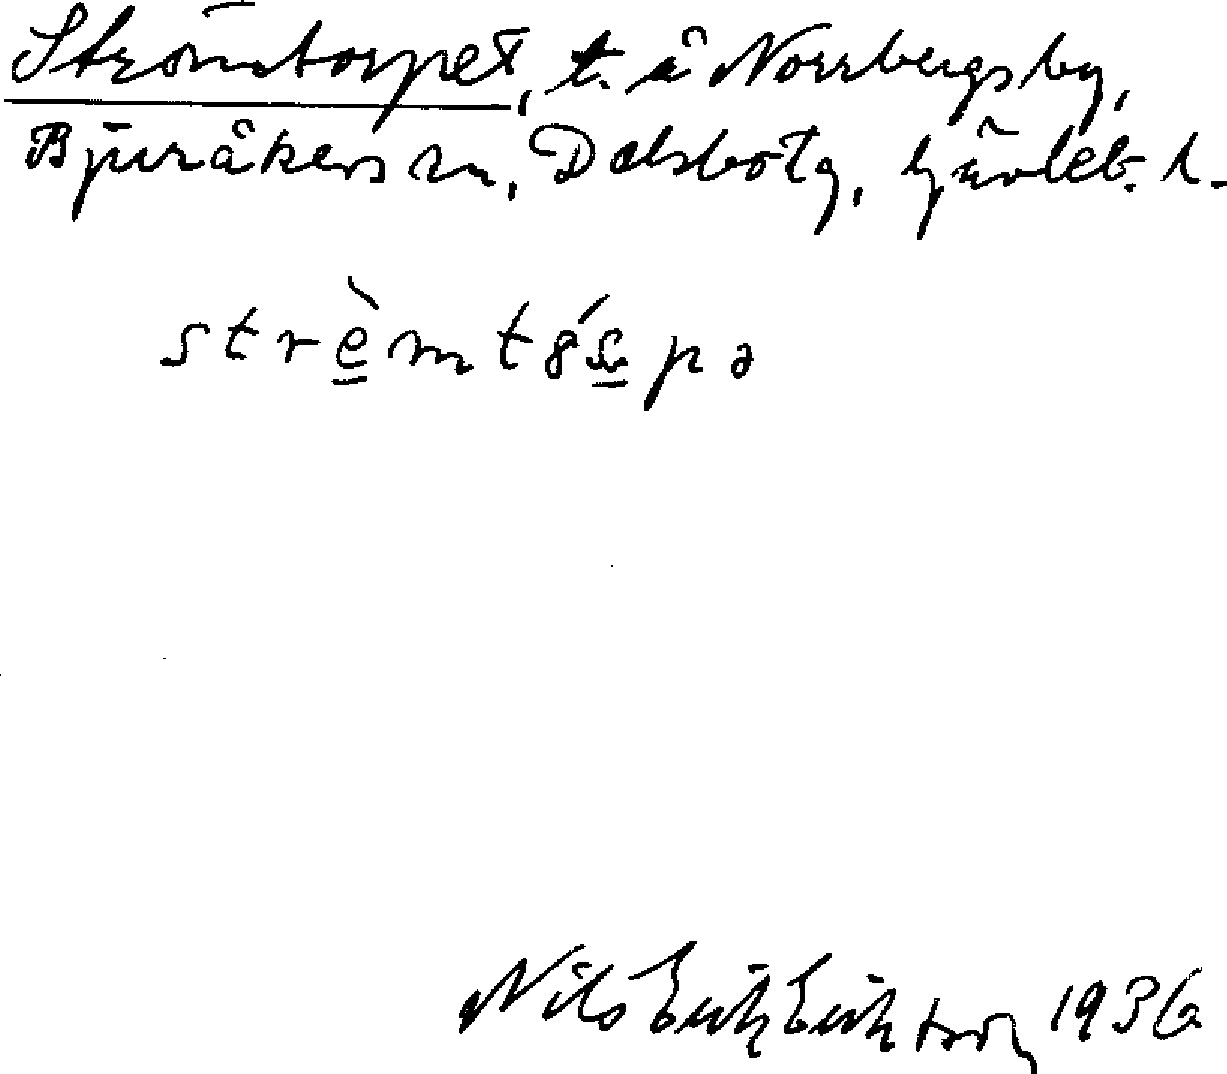 Strömtorpet, t. å Norrbergsby,
Bjuråkers sn, Delsbo tg, Gävleb. l.
Nils Erik Eriksson 1936